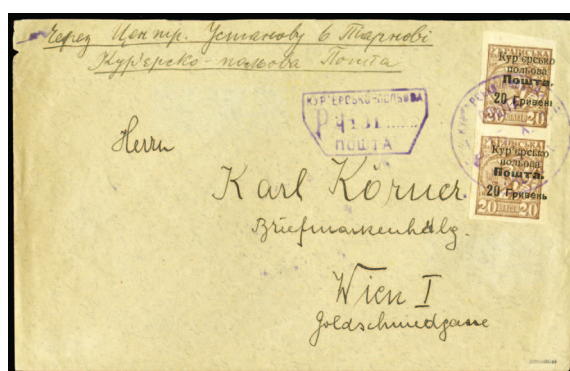 Через Центр. Установу в Тарнові
Кур'єрско-польова Пошта
КУР'ЄРСЬКО-ПОЛЬОВА
ПОШТА
Кур'єрсько
польова
Пошта.
20 Гривень
20 20
Кур'єрсько
польова
Пошта.
20 Гривень
20 20
Herrn
Karl Körner
Briefmarkenhdlg.
Wien I
Goldschmiedgasse